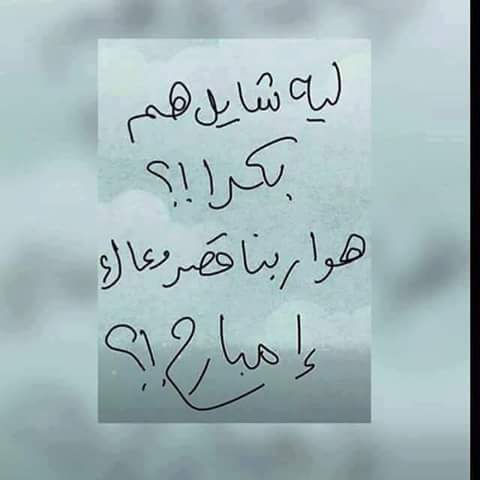 ليه شايل هم
بكرا !!؟
هوا ربنا قصر معاك
إمبارح !!؟